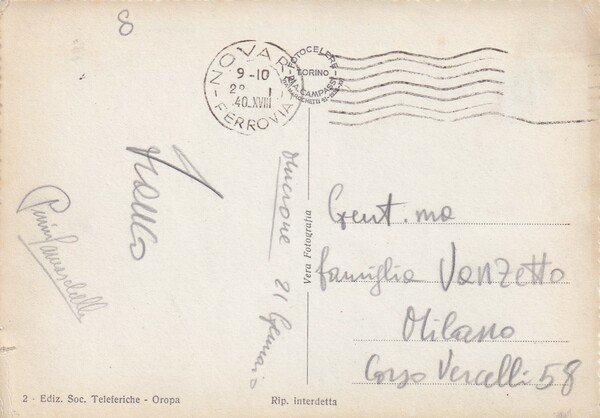 8
NOVARA
FERROVIA
9-10
40.XVIII
FOTOCELERE
TORINO
Franco
21 Gennaio
Vera Fotografia
Gent.ma
famiglia Vanzetto
Milano
Corso Vercelli 58
2 - Ediz. Soc. Teleferiche - Oropa
Rip. interdetta